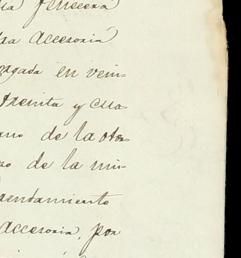 tercera
accesoria
gada en vein-
treinta y cua-
ano de la otra
ro de la mis-
rendamiento
accesoria, por